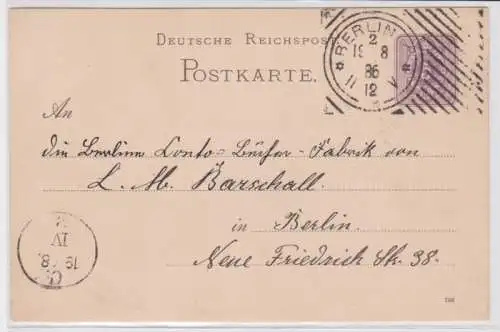 DEUTSCHE REICHSPOST
POSTKARTE.
BERLIN
2
19 8
86
11 12 V
An
die Berliner Conto-Bücher-Fabrik von
L. M. Barschall.
in Berlin.
Neue Friedrich Str. 38.
IV
19 8